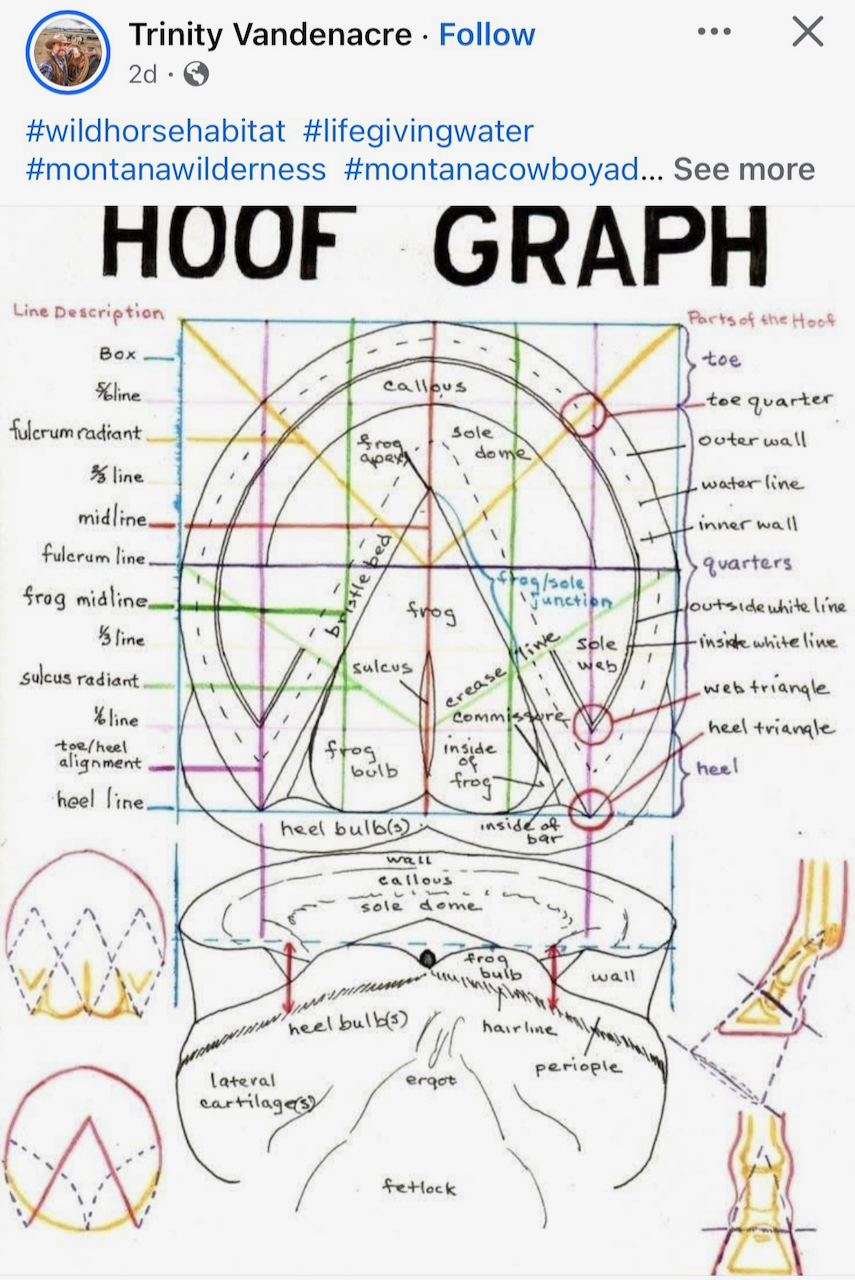 Trinity Vandenacre · Follow
2d ·
#wildhorsehabitat #lifegivingwater
#montanawilderness #montanacowboyad... See more
HOOF GRAPH
Line Description
Parts of the Hoof
Box
5/6 line
fulcrum radiant
2/3 line
midline
fulcrum line
frog midline
1/3 line
sulcus radiant
1/6 line
toe/heel
alignment
heel line
callous
frog
apex
sole
dome
bristle bed
frog/sole
junction
frog
sulcus
crease line
sole
web
commissure
frog
bulb
inside
of
frog
heel bulb(s)
inside of
bar
toe
toe quarter
outer wall
water line
inner wall
quarters
outside white line
inside white line
web triangle
heel triangle
heel
wall
callous
sole dome
frog
bulb
wall
heel bulb(s)
hairline
periople
lateral
cartilage(s)
ergot
fetlock